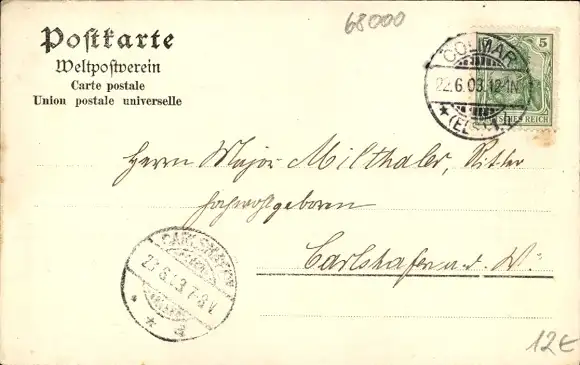 68000
Postkarte
Weltpostverein
Carte postale
Union postale universelle
COLMAR
22.6.03.12-1N.
* (ELS.) 1.
5
DEUTSCHES REICH
Herrn Major Milthaler, Ritter
Hochwohlgeboren
Carlshafen a. d. W.
CARLSHAFEN
23.6.03.7-8V.
* * a
12€